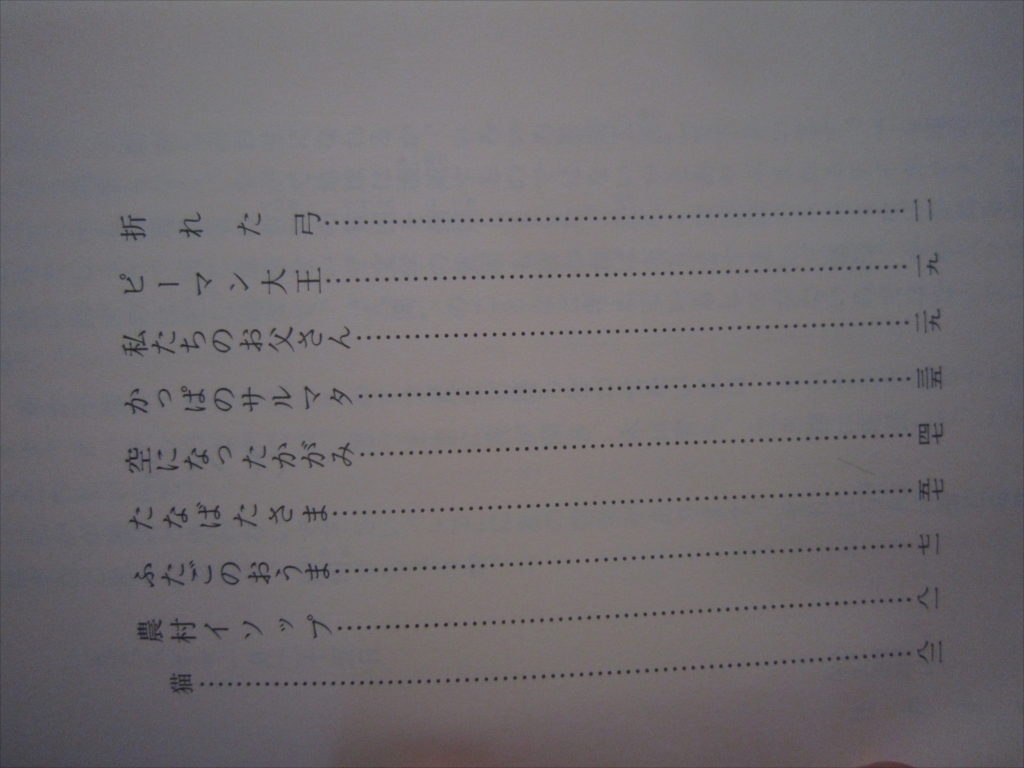 折れた弓……一一
ピーマン大王……一九
私たちのお父さん……二九
かっぱのサルマタ……三五
空になったかがみ……四七
たなばたさま……五七
ふたごのおうま……七一
農村イソップ……八一
猫……八二